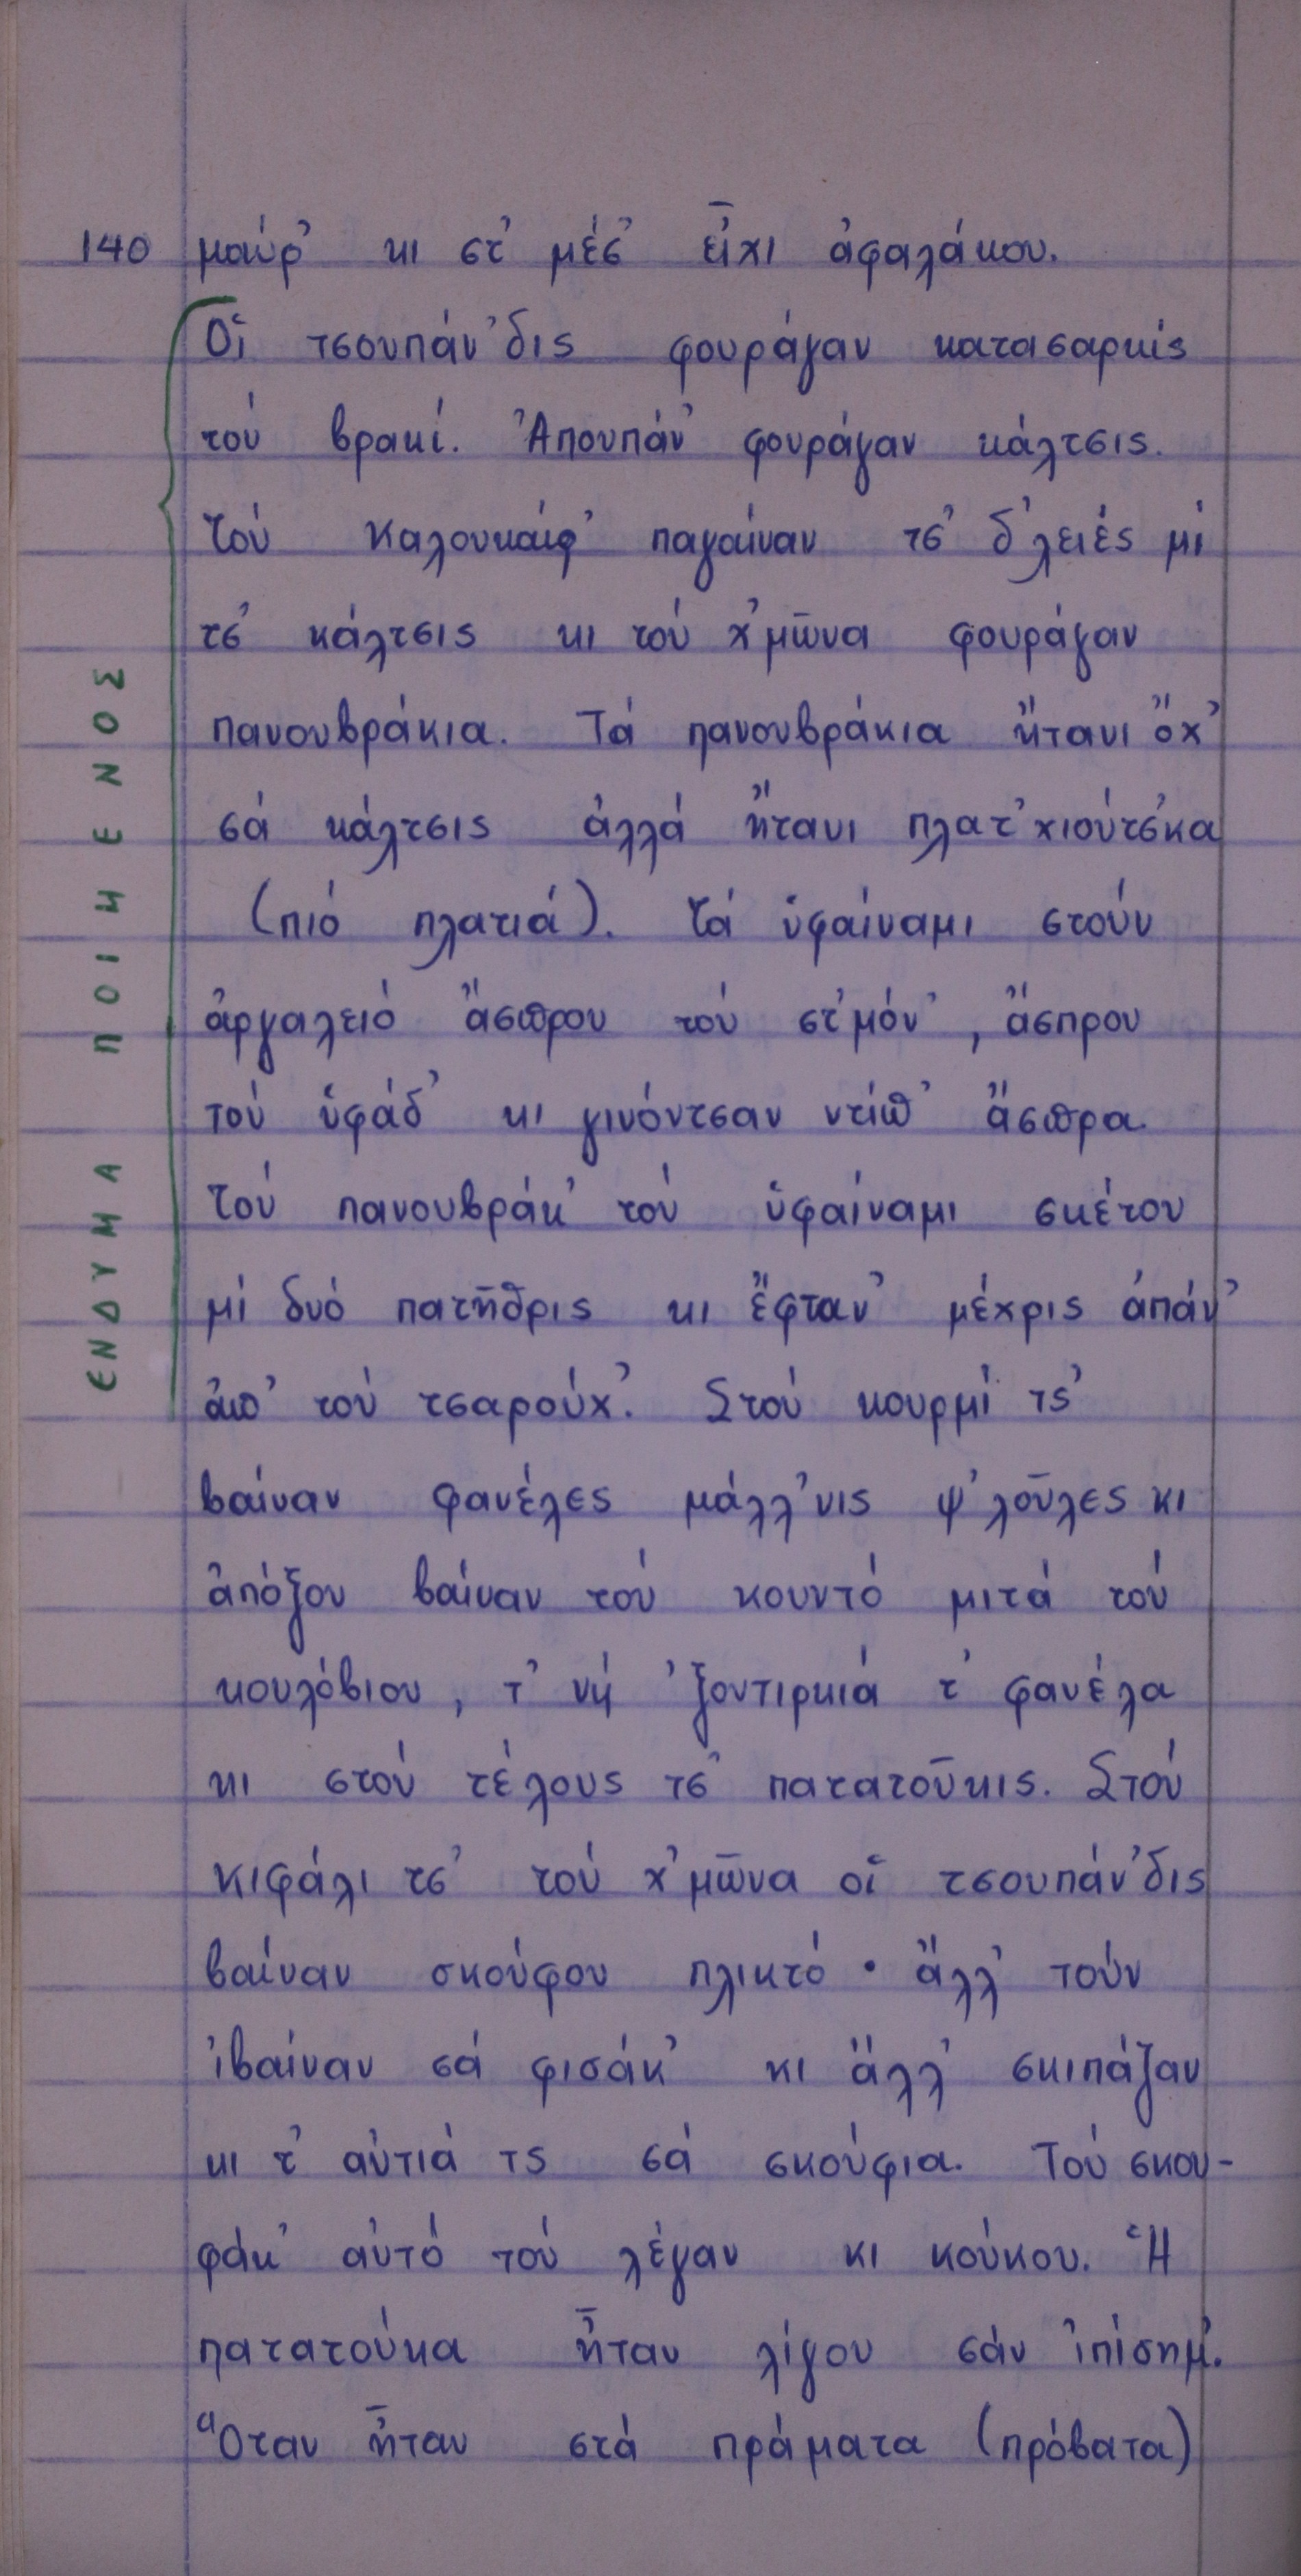 140 μαύρ' κι στ' μέσ' εἶχι ἀφαλάκου.
Οἱ τσουπάν'δις φουράγαν κατασαρκίς
τού βρακί. Ἀπουπάν' φουράγαν κάλτσις.
Τού καλουκαίρ' παγαίναν τσ' δ'λειές μι
τσ' κάλτσις κι τού χ'μῶνα φουράγαν
πανουβράκια. Τά πανουβράκια ἤτανι ὄχ'
σά κάλτσις ἀλλά ἤτανι πλατ'χιούτσ'κα
(πιό πλατιά). Τά ὑφαίναμι στούν
ἀργαλειό ἄσπρου τού στ'μόν', ἄσπρου
τού ὑφάδ' κι γινόντσαν ντίπ' ἄσπρα.
Τού πανουβράκ' τού ὑφαίναμι σκέτου
μί δυό πατῆθρις κι ἔφταν' μέχρις ἀπάν'
ἀπ' τού τσαρούχ'. Στού κουρμί τσ'
βαίναν φανέλες μάλλ'νις ψ'λοῦλες κι
ἀπόξου βαίναν τού κουντό μιτά τού
κουλόβιου, τ' νή 'ξουτιρκιά τ' φανέλα
κι στού τέλους τσ' πατατοῦκις. Στού
κιφάλι τσ' τού χ'μῶνα οἱ τσουπάν'δις
βαίναν σκούφου πλικτό · ἄλλ' τούν
ἰβαίναν σά φισάκ' κι ἄλλ' σκιπάζαν
κι τ' αὐτιά τς σά σκούφια. Τού σκου-
φάκ' αὐτό τού λέγαν κι κούκου. Ἡ
πατατούκα ἦταν λίγου σάν ἰπίσημ'.
Ὅταν ἦταν στά πράματα (πρόβατα)
ΕΝΔΥΜΑ ΠΟΙΜΕΝΟΣ